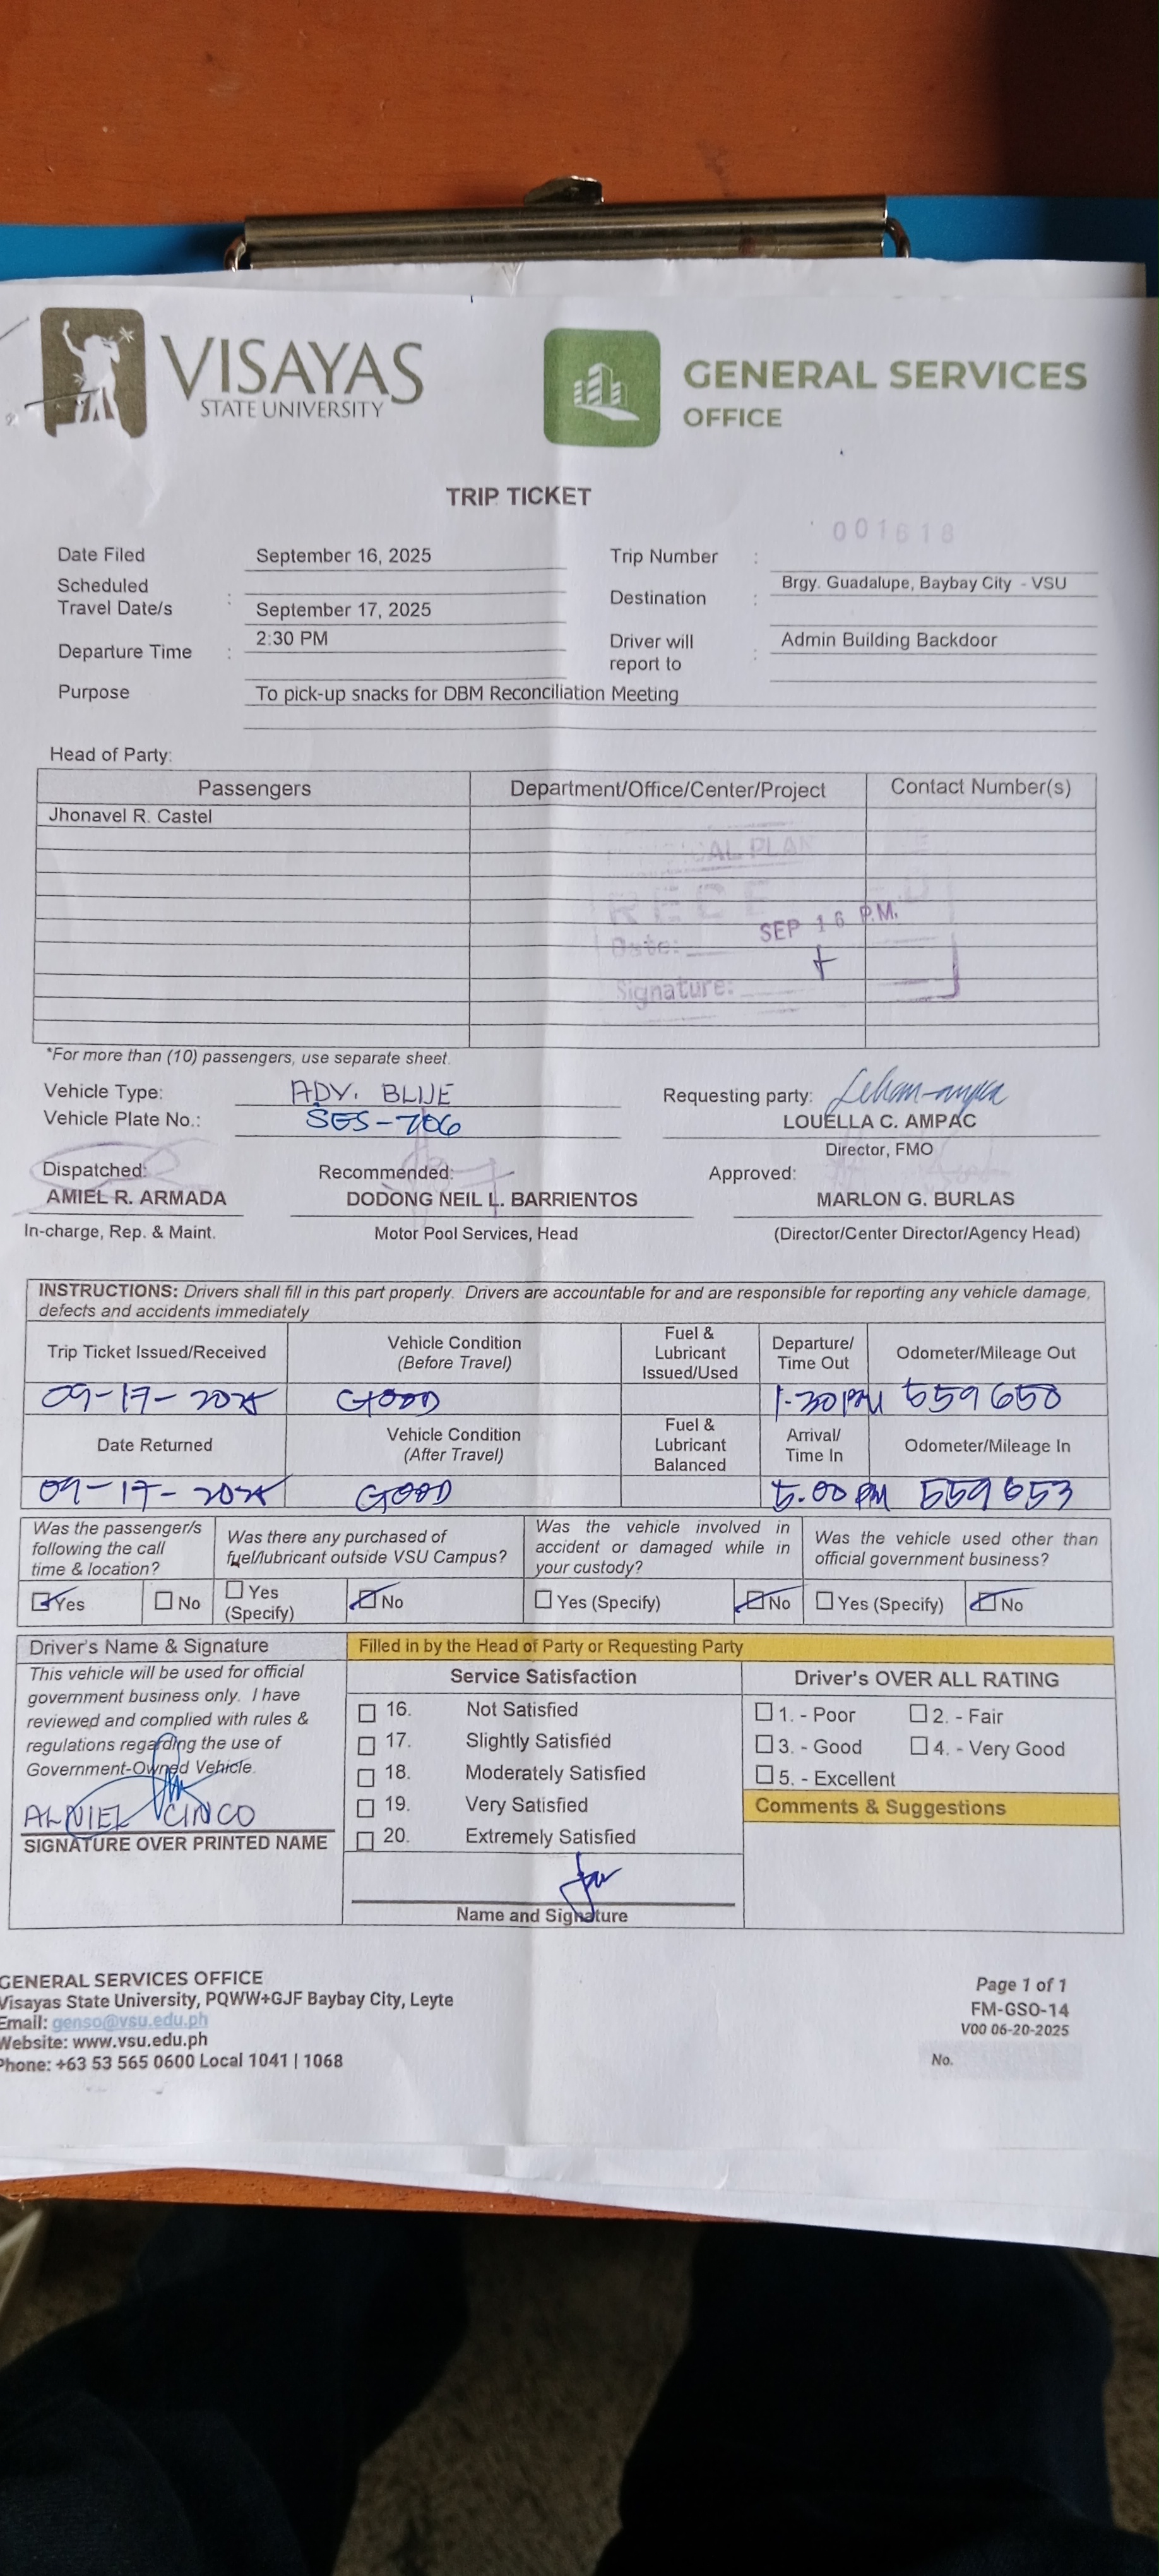 VISAYAS
STATE UNIVERSITY
GENERAL SERVICES
OFFICE
TRIP TICKET
001618
Date Filed September 16, 2025 Trip Number :
Scheduled Travel Date/s : September 17, 2025 Destination : Brgy. Guadalupe, Baybay City - VSU
Departure Time : 2:30 PM Driver will report to : Admin Building Backdoor
Purpose To pick-up snacks for DBM Reconciliation Meeting
Head of Party:
Passengers Department/Office/Center/Project Contact Number(s)
Jhonavel R. Castel
AL PLAN
RECE ED
Date: SEP 16 P.M.
Signature:
*For more than (10) passengers, use separate sheet.
Vehicle Type: ADV. BLUE Requesting party:
Vehicle Plate No.: SES-706 LOUELLA C. AMPAC
Director, FMO
Dispatched: Recommended: Approved:
AMIEL R. ARMADA DODONG NEIL L. BARRIENTOS MARLON G. BURLAS
In-charge, Rep. & Maint. Motor Pool Services, Head (Director/Center Director/Agency Head)
INSTRUCTIONS: Drivers shall fill in this part properly. Drivers are accountable for and are responsible for reporting any vehicle damage,
defects and accidents immediately
Trip Ticket Issued/Received Vehicle Condition (Before Travel) Fuel & Lubricant Issued/Used Departure/ Time Out Odometer/Mileage Out
09-17-2025 GOOD 1:30PM 559650
Date Returned Vehicle Condition (After Travel) Fuel & Lubricant Balanced Arrival/ Time In Odometer/Mileage In
09-17-2025 GOOD 5:00 PM 559653
Was the passenger/s following the call time & location? Was there any purchased of fuel/lubricant outside VSU Campus? Was the vehicle involved in accident or damaged while in your custody? Was the vehicle used other than official government business?
Yes No Yes (Specify) No Yes (Specify) No Yes (Specify) No
Driver's Name & Signature Filled in by the Head of Party or Requesting Party
This vehicle will be used for official
government business only. I have
reviewed and complied with rules &
regulations regarding the use of
Government-Owned Vehicle.
ALNIEL CINCO
SIGNATURE OVER PRINTED NAME
Service Satisfaction
16. Not Satisfied
17. Slightly Satisfied
18. Moderately Satisfied
19. Very Satisfied
20. Extremely Satisfied
Name and Signature
Driver's OVER ALL RATING
1. - Poor 2. - Fair
3. - Good 4. - Very Good
5. - Excellent
Comments & Suggestions
GENERAL SERVICES OFFICE
Visayas State University, PQWW+GJF Baybay City, Leyte
Email: genso@vsu.edu.ph
Website: www.vsu.edu.ph
Phone: +63 53 565 0600 Local 1041 | 1068
Page 1 of 1
FM-GSO-14
V00 06-20-2025
No.